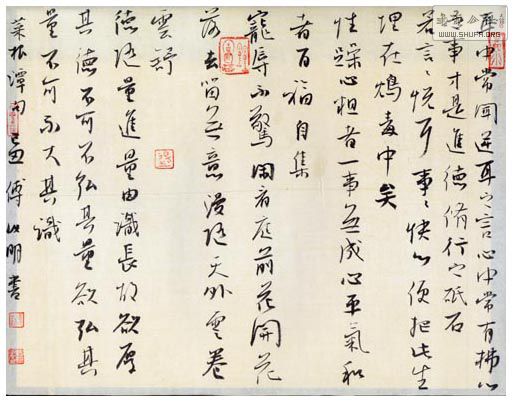 耳中常聞逆耳之言心中常有拂心
之事才是進德脩行之砥石
若言〻悅耳事〻快心便把此生
埋在鴆毒中矣
性躁心粗者一事無成心平氣和
者百福自集
寵辱不驚閑看庭前花開花
落去留無意漫隨天外雲卷
雲舒
德隨量進量由識長故欲厚
其德不可不弘其量欲弘其
量不可不大其識
菜根譚句 傅 明書
WWW.SHUFA.ORG